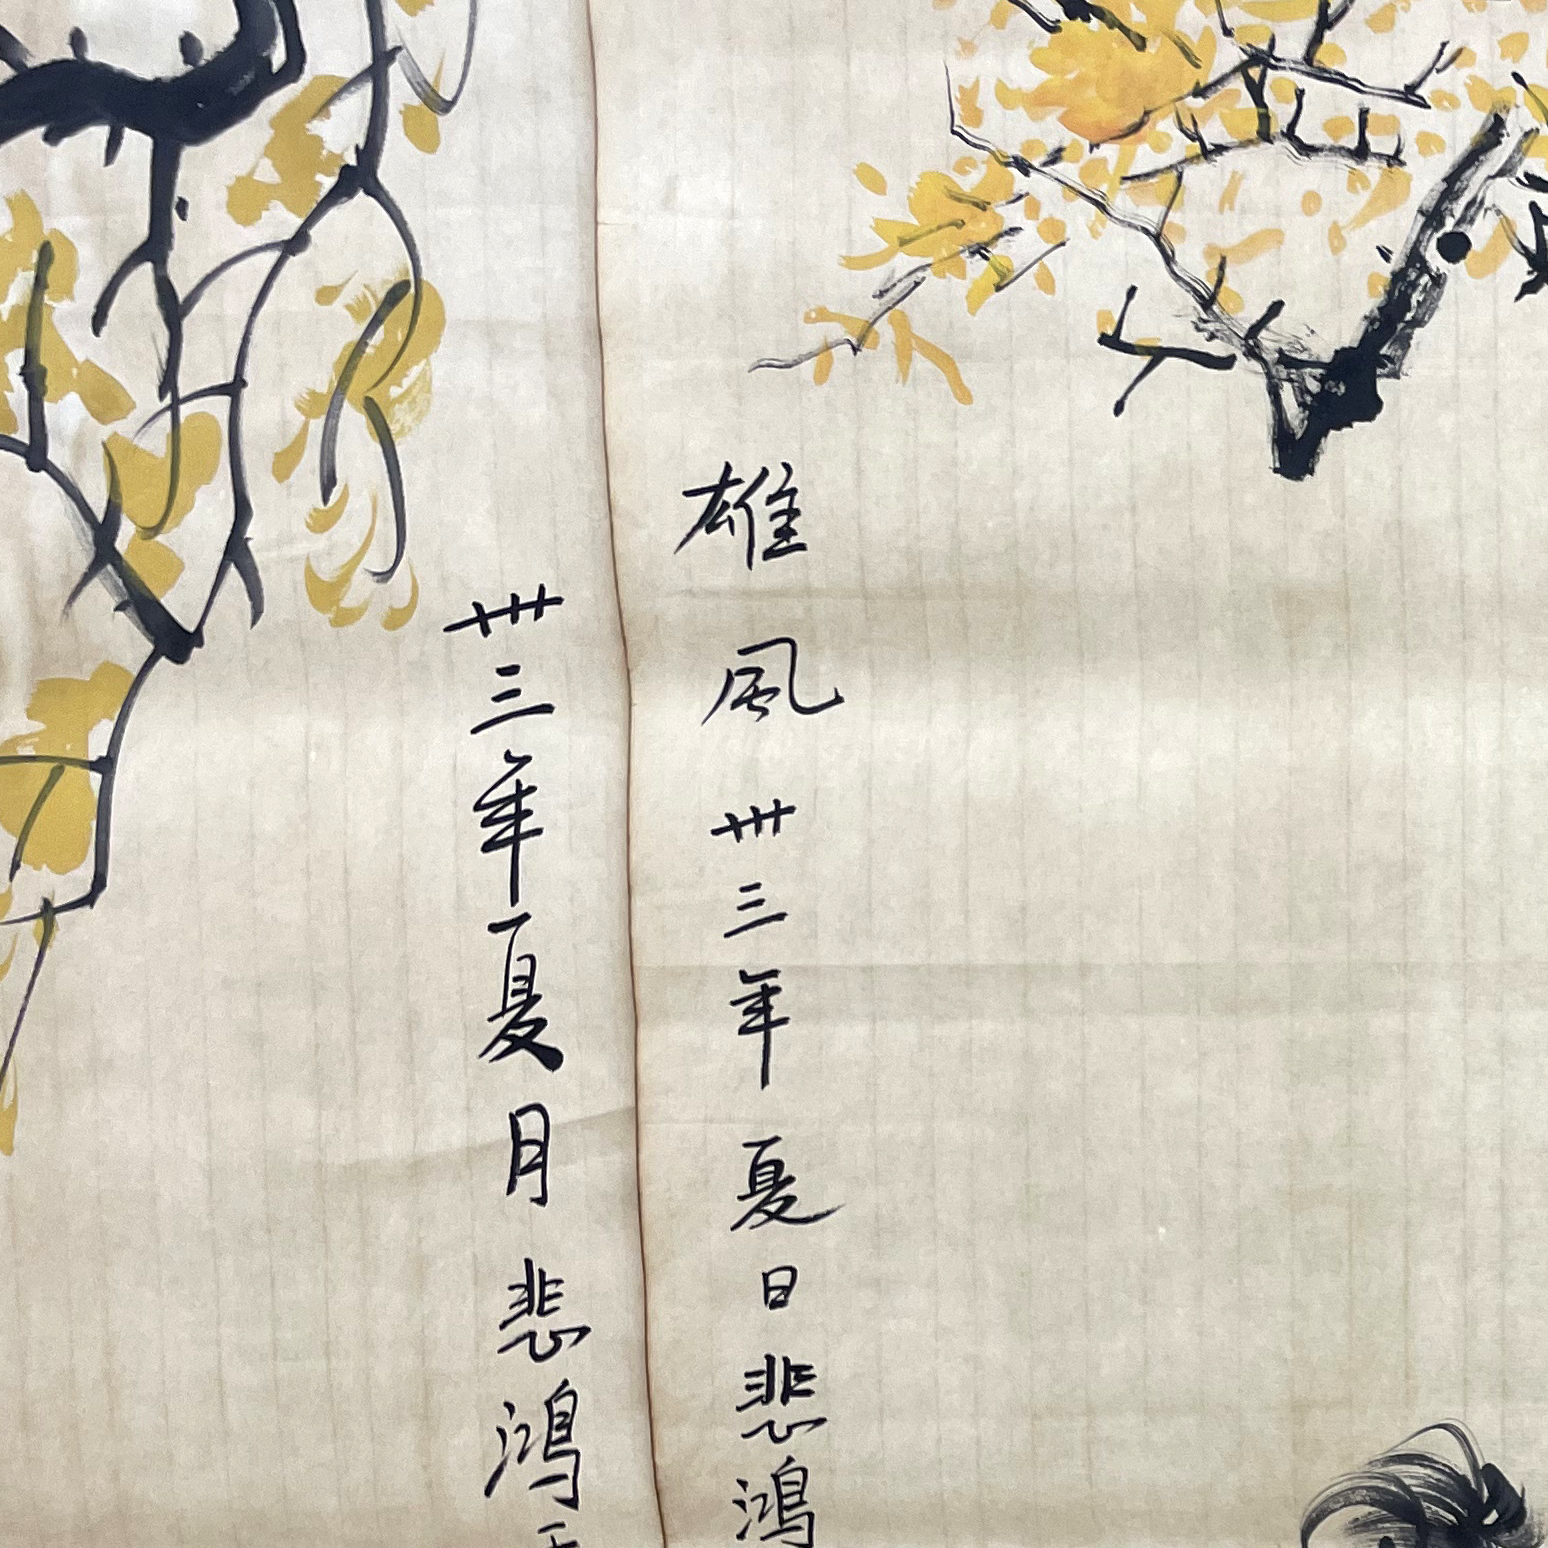 雄風 卅三年夏日悲鴻
卅三年夏月悲鴻